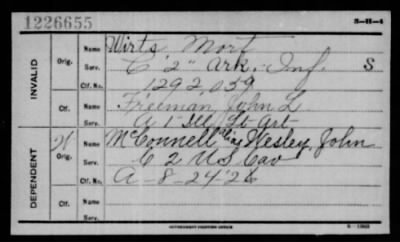 1226655
3—H—4
INVALID
Orig.
Name Wirts Mort
Serv. C "2" Ark. Inf. S
Ctf. No. 1292,059
Ctf.
Name Freeman, John L
Serv. A 1 Ill Lt Art
DEPENDENT
Orig.
Name McConnell alias Wesley, John
Serv. C 2 US Cav
Ctf. No. A-8-24'26
Ctf.
Name
Serv.
GOVERNMENT PRINTING OFFICE